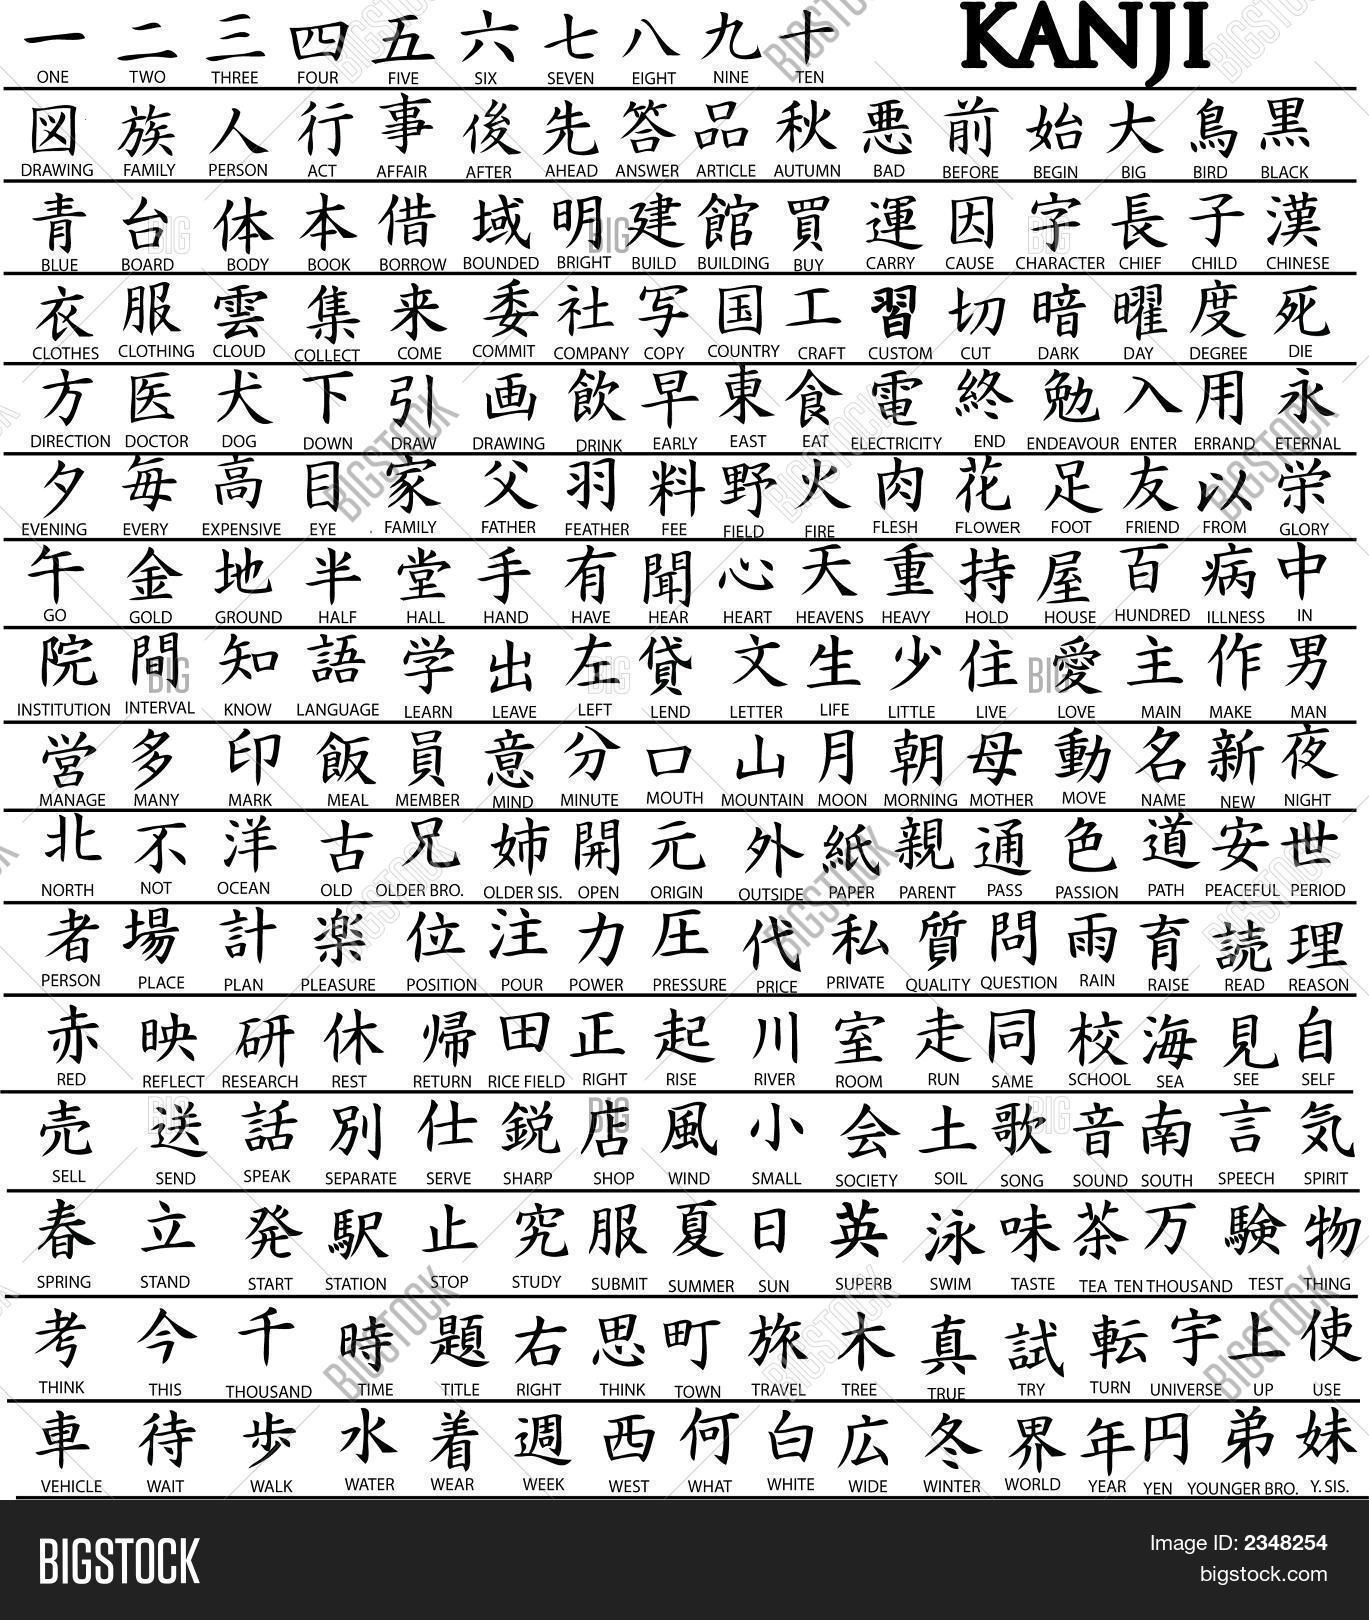 一 二 三 四 五 六 七 八 九 十 KANJI
ONE TWO THREE FOUR FIVE SIX SEVEN EIGHT NINE TEN
図 族 人 行 事 後 先 答 品 秋 悪 前 始 大 鳥 黒
DRAWING FAMILY PERSON ACT AFFAIR AFTER AHEAD ANSWER ARTICLE AUTUMN BAD BEFORE BEGIN BIG BIRD BLACK
青 台 体 本 借 域 明 建 館 買 運 因 字 長 子 漢
BLUE BOARD BODY BOOK BORROW BOUNDED BRIGHT BUILD BUILDING BUY CARRY CAUSE CHARACTER CHIEF CHILD CHINESE
衣 服 雲 集 来 委 社 写 国 工 習 切 暗 曜 度 死
CLOTHES CLOTHING CLOUD COLLECT COME COMMIT COMPANY COPY COUNTRY CRAFT CUSTOM CUT DARK DAY DEGREE DIE
方 医 犬 下 引 画 飲 早 東 食 電 終 勉 入 用 永
DIRECTION DOCTOR DOG DOWN DRAW DRAWING DRINK EARLY EAST EAT ELECTRICITY END ENDEAVOUR ENTER ERRAND ETERNAL
夕 毎 高 目 家 父 羽 料 野 火 肉 花 足 友 以 栄
EVENING EVERY EXPENSIVE EYE FAMILY FATHER FEATHER FEE FIELD FIRE FLESH FLOWER FOOT FRIEND FROM GLORY
午 金 地 半 堂 手 有 聞 心 天 重 持 屋 百 病 中
GO GOLD GROUND HALF HALL HAND HAVE HEAR HEART HEAVENS HEAVY HOLD HOUSE HUNDRED ILLNESS IN
院 間 知 語 学 出 左 貸 文 生 少 住 愛 主 作 男
INSTITUTION INTERVAL KNOW LANGUAGE LEARN LEAVE LEFT LEND LETTER LIFE LITTLE LIVE LOVE MAIN MAKE MAN
営 多 印 飯 員 意 分 口 山 月 朝 母 動 名 新 夜
MANAGE MANY MARK MEAL MEMBER MIND MINUTE MOUTH MOUNTAIN MOON MORNING MOTHER MOVE NAME NEW NIGHT
北 不 洋 古 兄 姉 開 元 外 紙 親 通 色 道 安 世
NORTH NOT OCEAN OLD OLDER BRO. OLDER SIS. OPEN ORIGIN OUTSIDE PAPER PARENT PASS PASSION PATH PEACEFUL PERIOD
者 場 計 楽 位 注 力 圧 代 私 質 問 雨 育 読 理
PERSON PLACE PLAN PLEASURE POSITION POUR POWER PRESSURE PRICE PRIVATE QUALITY QUESTION RAIN RAISE READ REASON
赤 映 研 休 帰 田 正 起 川 室 走 同 校 海 見 自
RED REFLECT RESEARCH REST RETURN RICE FIELD RIGHT RISE RIVER ROOM RUN SAME SCHOOL SEA SEE SELF
売 送 話 別 仕 鋭 店 風 小 会 土 歌 音 南 言 気
SELL SEND SPEAK SEPARATE SERVE SHARP SHOP WIND SMALL SOCIETY SOIL SONG SOUND SOUTH SPEECH SPIRIT
春 立 発 駅 止 究 服 夏 日 英 泳 味 茶 万 験 物
SPRING STAND START STATION STOP STUDY SUBMIT SUMMER SUN SUPERB SWIM TASTE TEA TEN THOUSAND TEST THING
考 今 千 時 題 右 思 町 旅 木 真 試 転 宇 上 使
THINK THIS THOUSAND TIME TITLE RIGHT THINK TOWN TRAVEL TREE TRUE TRY TURN UNIVERSE UP USE
車 待 歩 水 着 週 西 何 白 広 冬 界 年 円 弟 妹
VEHICLE WAIT WALK WATER WEAR WEEK WEST WHAT WHITE WIDE WINTER WORLD YEAR YEN YOUNGER BRO. Y. SIS.
BIGSTOCK
Image ID: 2348254
bigstock.com